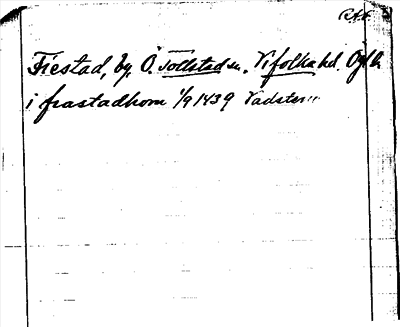 Fiestad, by, Ö. Tollstad sn. Vifolka hd. Ögtl.
i frastadhom 1/9 1439 Vadstena